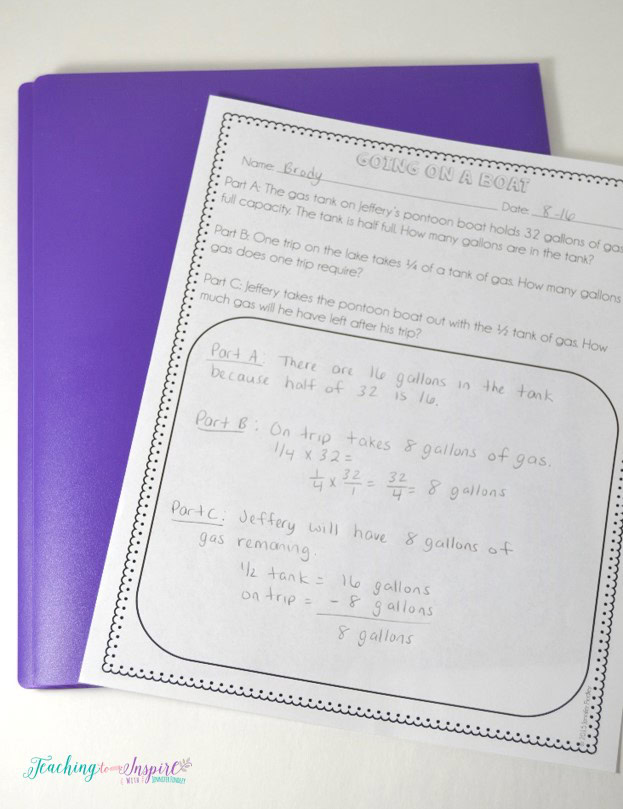 GOING ON A BOAT
Name Brody Date 8-16
Part A: The gas tank on Jeffery's pontoon boat holds 32 gallons of gas
full capacity. The tank is half full. How many gallons are in the tank?
Part B: One trip on the lake takes ¼ of a tank of gas. How many gallons
gas does one trip require?
Part C: Jeffery takes the pontoon boat out with the ½ tank of gas. How
much gas will he have left after his trip?
Part A: There are 16 gallons in the tank
because half of 32 is 16.
Part B: On trip takes 8 gallons of gas.
1/4 x 32 =
1/4 x 32/1 = 32/4 = 8 gallons
Part C: Jeffery will have 8 gallons of
gas remaning.
1/2 tank = 16 gallons
on trip = - 8 gallons
8 gallons
Teaching to Inspire
WITH JENNIFER FINDLEY